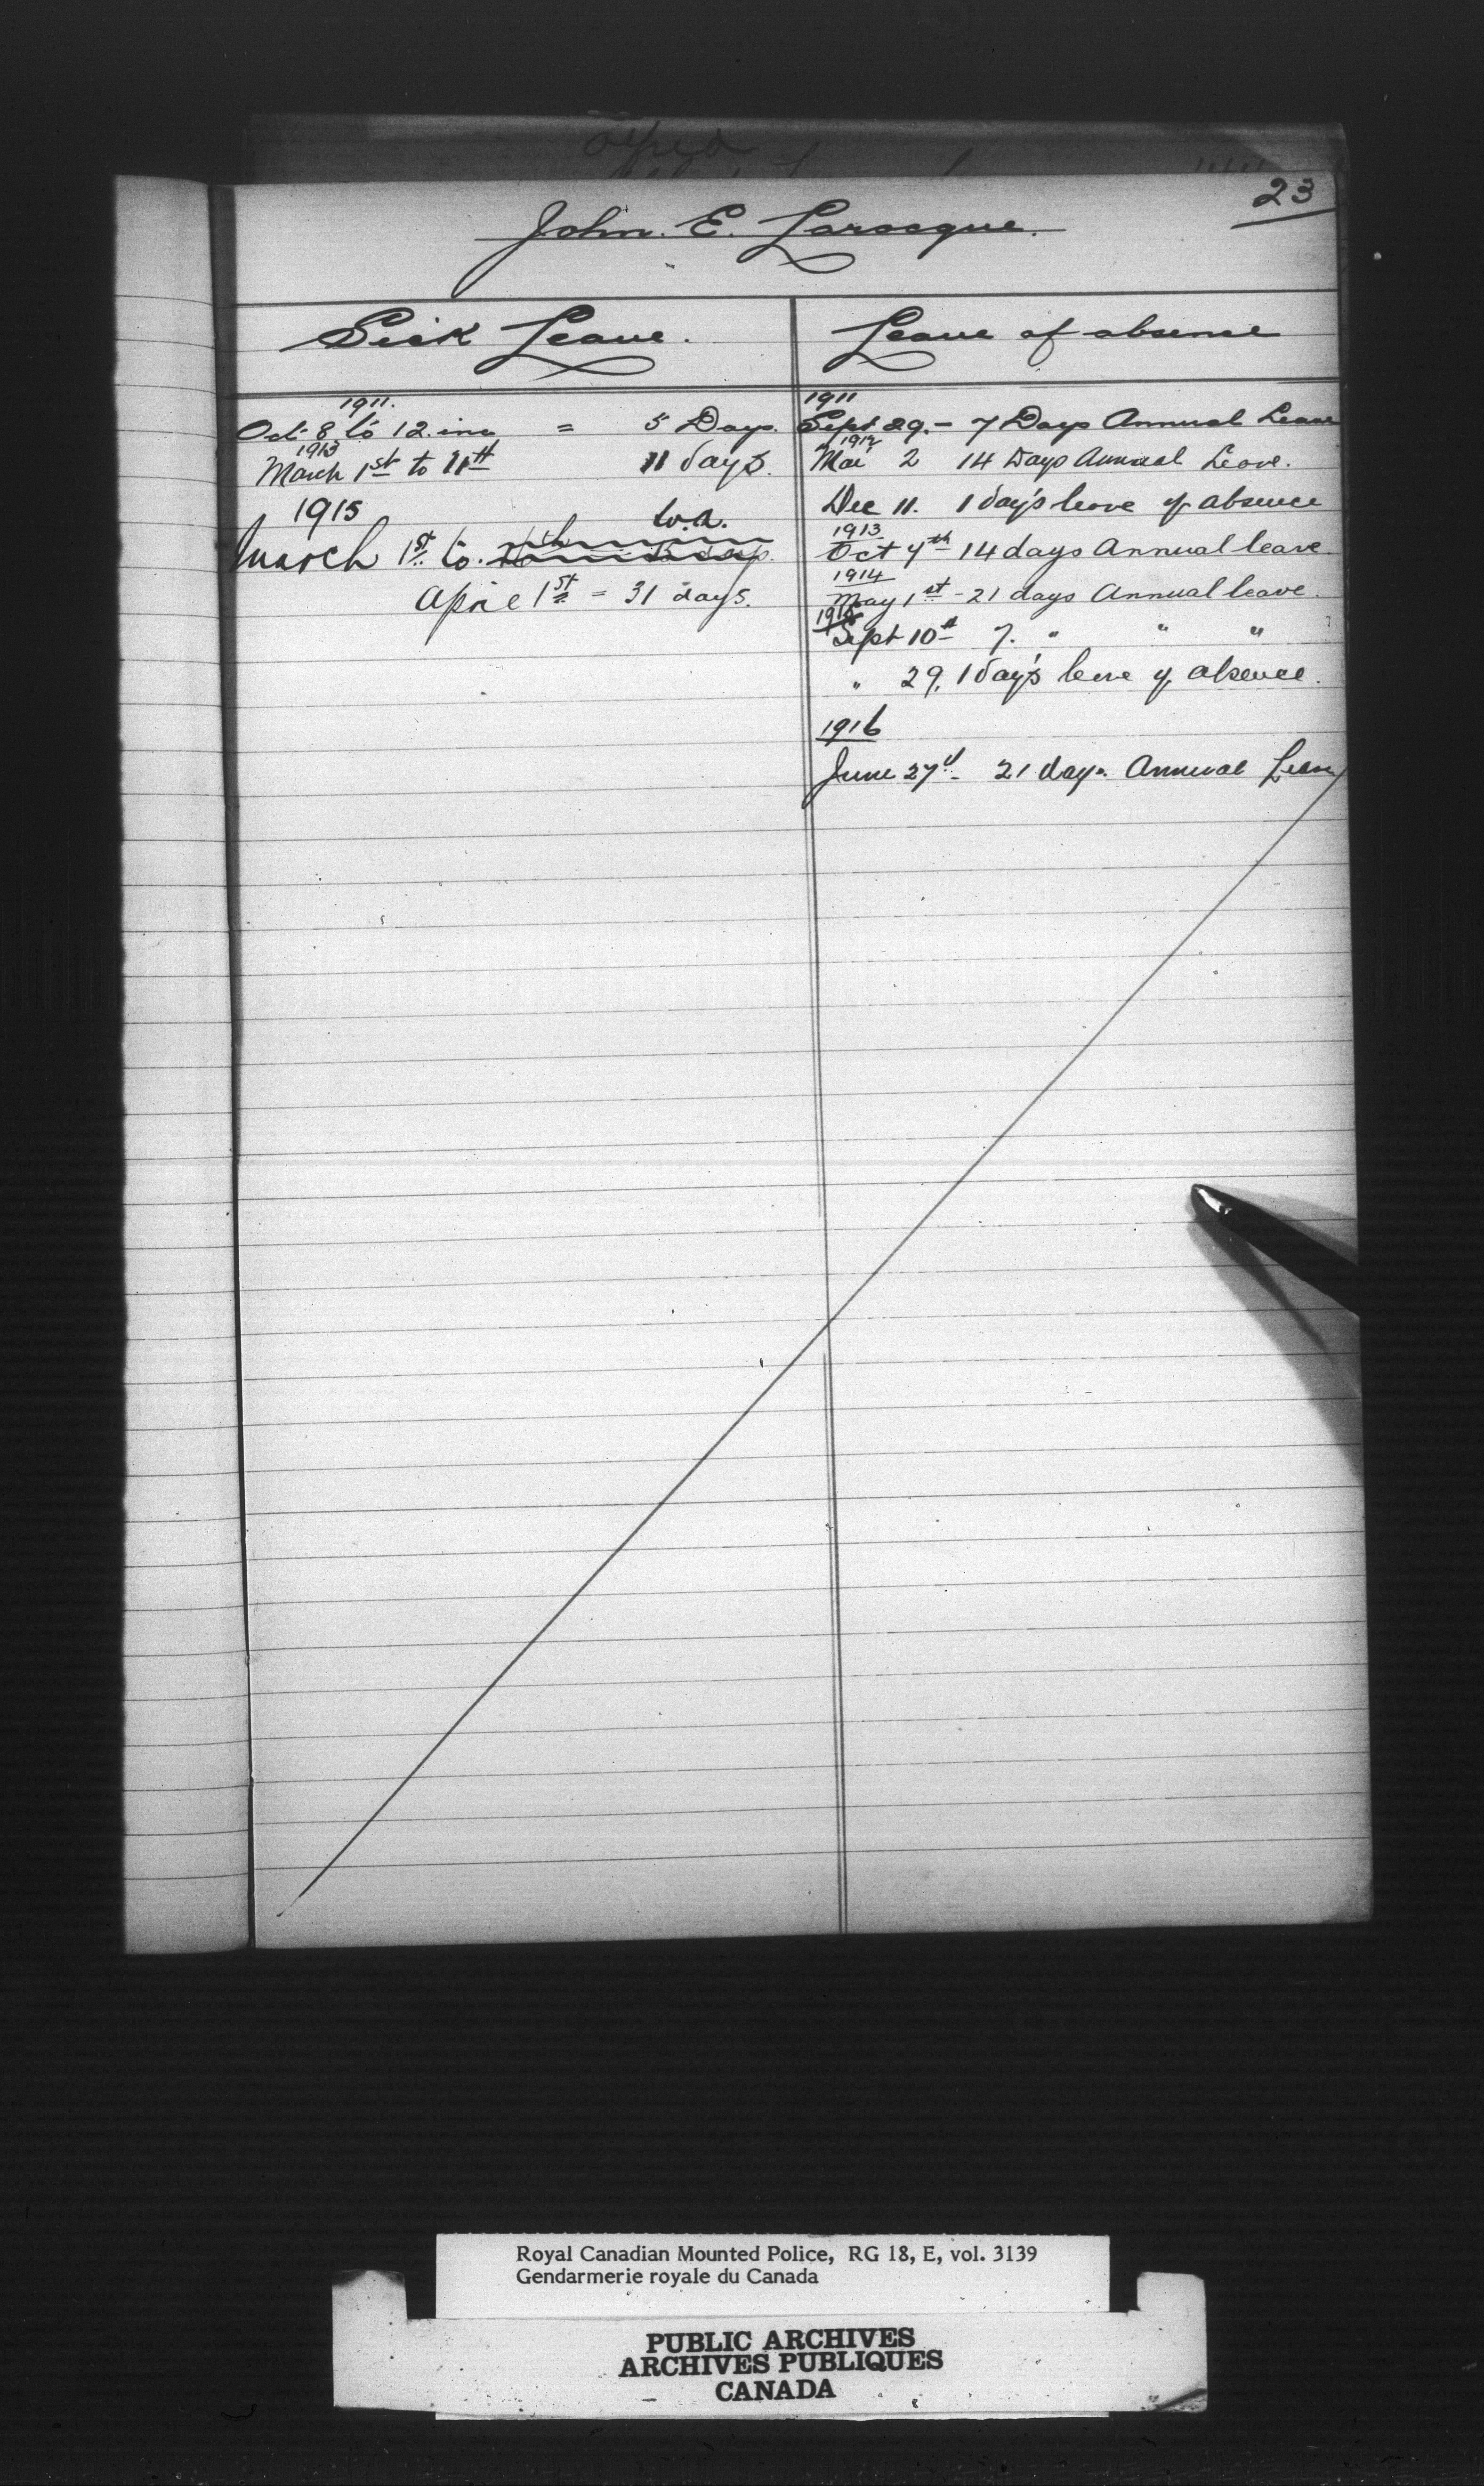 23
John. E. Larocque.
Sick Leave.
1911.
Oct 8 to 12. inc = 5 Days.
1913
March 1st to 11th 11 days.
1915
W.A.
March 1st to.
April 1st = 31 days.
Leave of absence
1911
Sept 29. - 7 Days Annual Leave
1912
Mar 2 14 Days Annual Leave.
Dec 11. 1 day's leave of absence
1913
Oct 7th 14 days Annual leave
1914
May 1st - 21 days Annual leave.
1915
Sept 10th 7. " " "
" 29. 1 day's leave of absence.
1916
June 27th - 21 days Annual Leave
Royal Canadian Mounted Police, RG 18, E, vol. 3139
Gendarmerie royale du Canada
PUBLIC ARCHIVES
ARCHIVES PUBLIQUES
CANADA